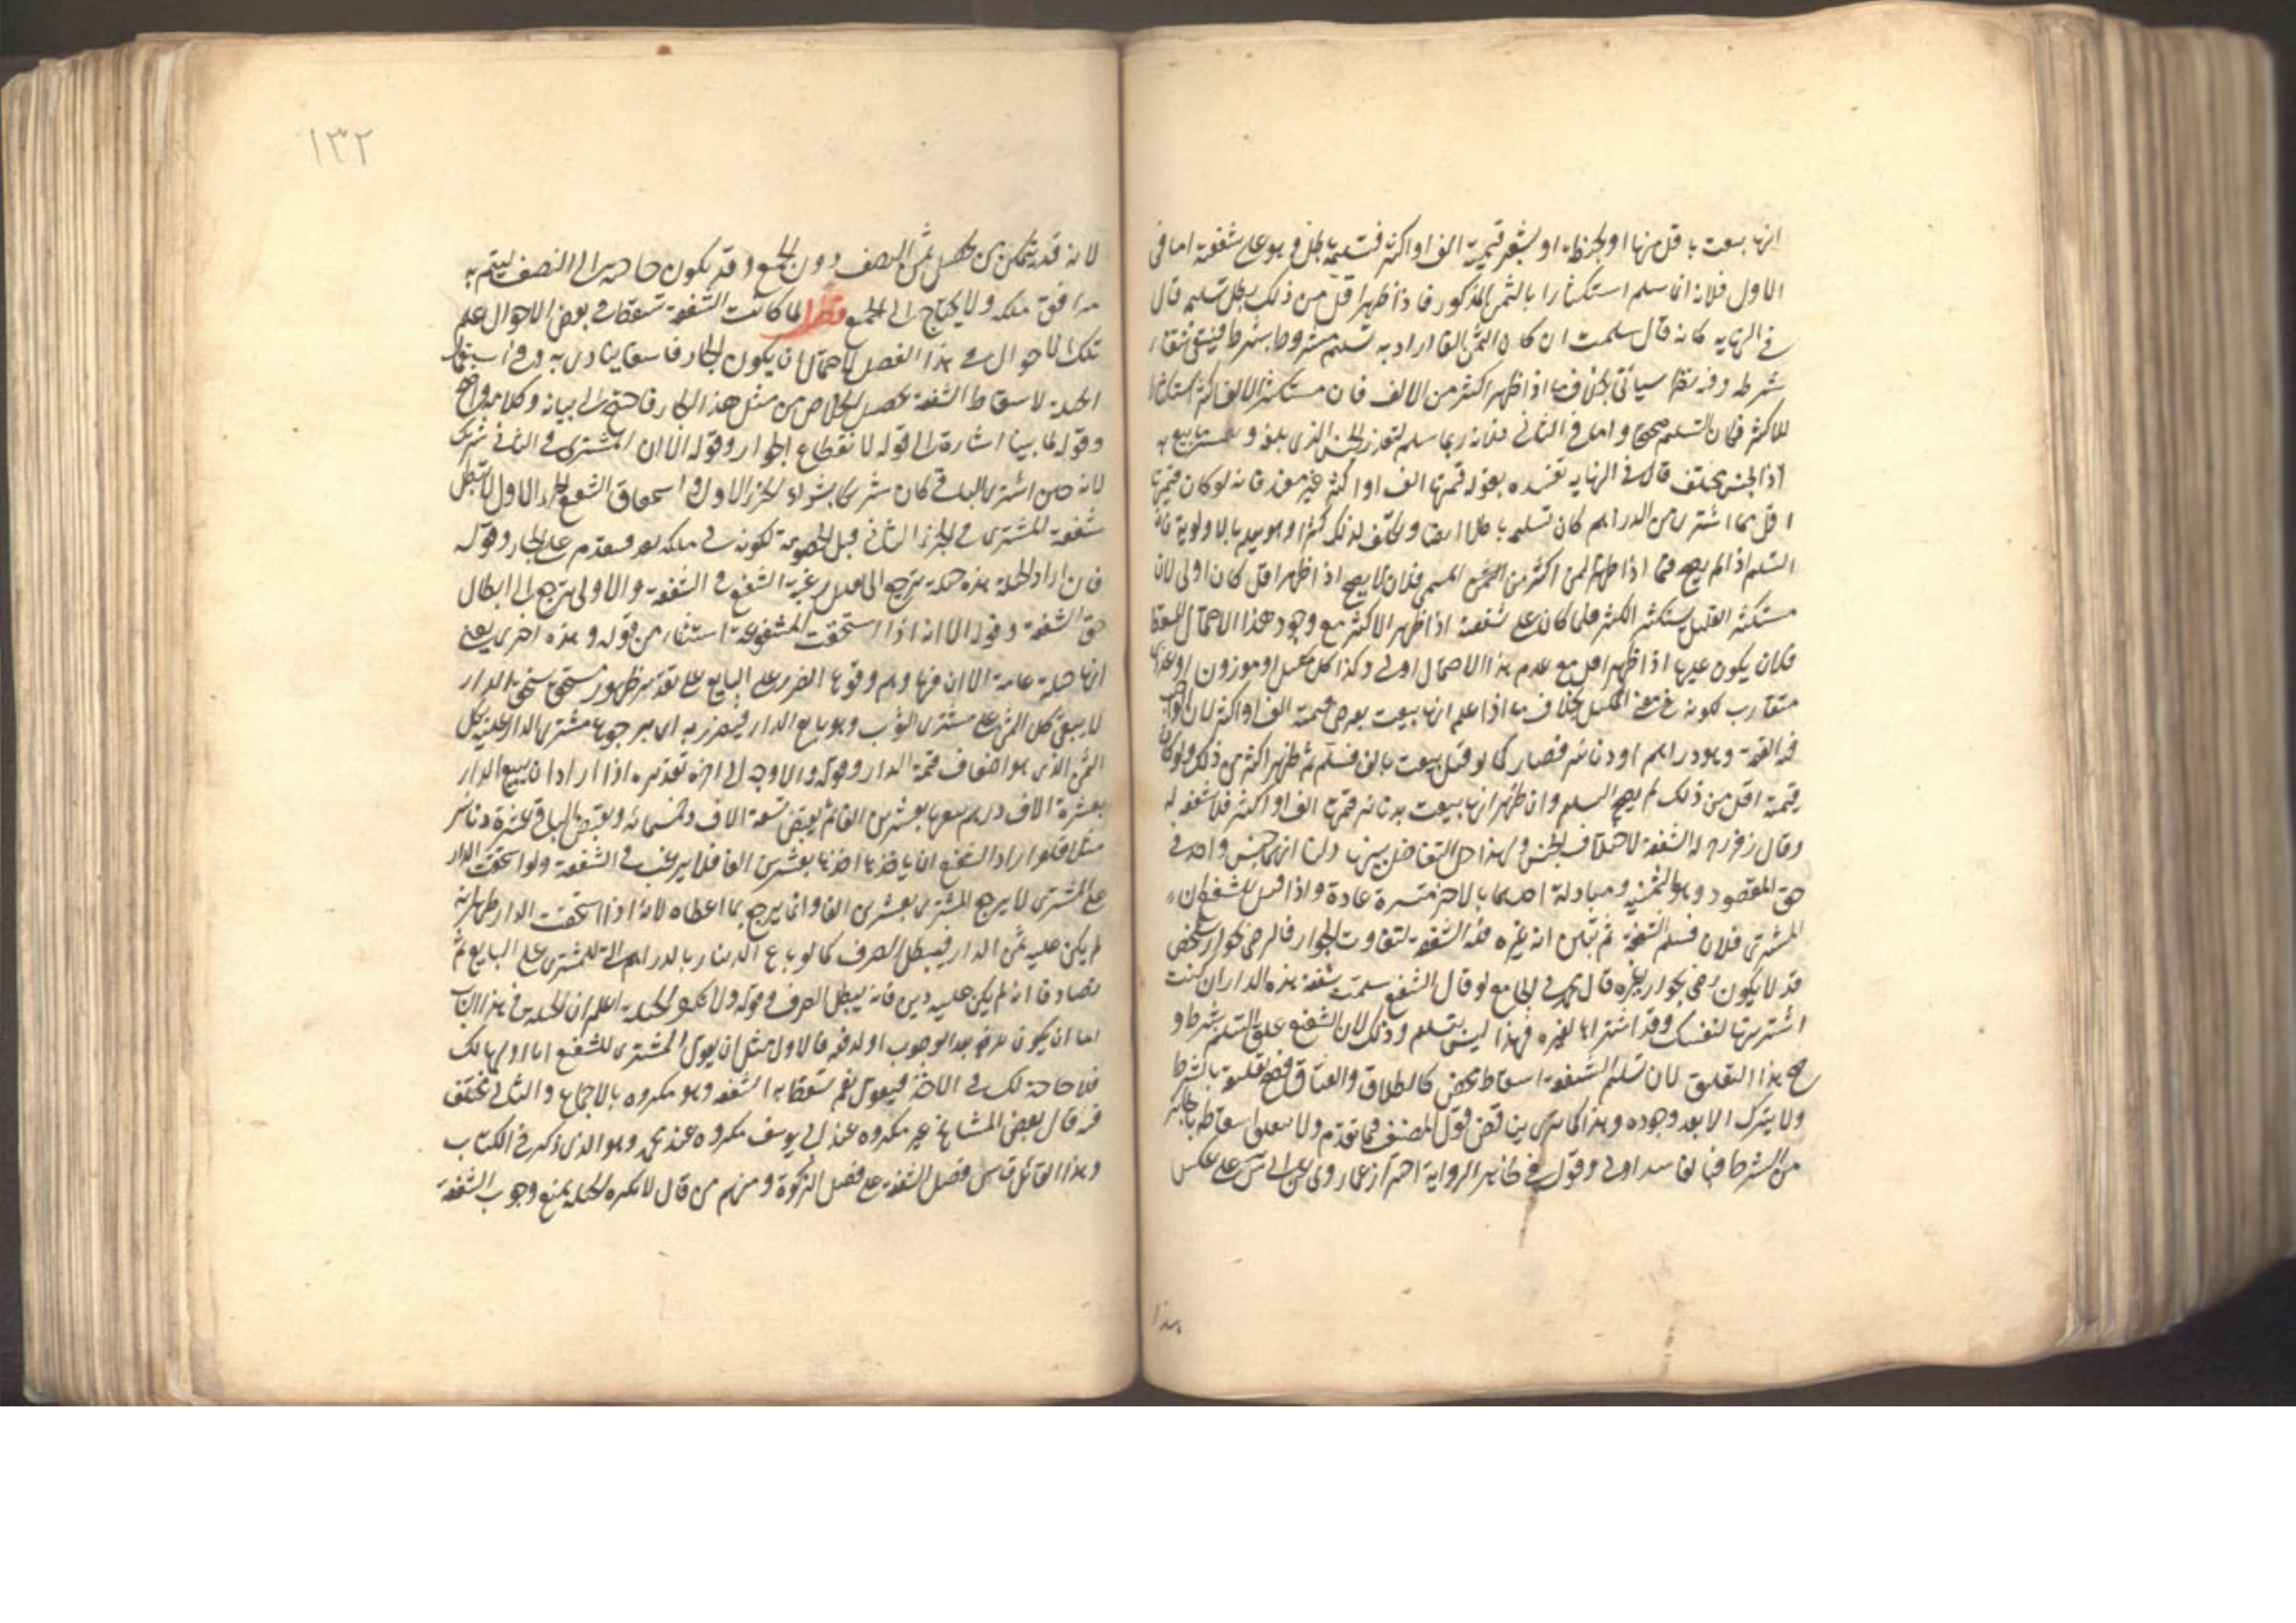 انها بيعت باقل منها او بحنطة او بشعير قيمته الف او اكثر فتسليمه باطل وهو على شفعته اما في
الاول فلانه انما سلم استكثارا بالثمن المذكور فاذا ظهر اقل من ذلك بطل تسليمه قال
في النهاية كانه قال سلمت ان كان الثمن الفا اراد به تسليم مشروط بشرط فينتفي بانتفاء
شرطه وفيه نظر سيأتي بخلاف ما اذا ظهر اكثر من الالف فان مستكثر الالف اكثر استكثارا
للاكثر فكان التسليم صحيحا واما في الثاني فلانه ربما سلم لتعذر الجنس الذي بلغه و بيع به
اذ الجنس مختلف قال في النهاية تقييده بقوله قيمتها الف او اكثر غير مفيد فانه لو كان قيمتها
اقل مما اشترى من الدراهم كان تسليمه باطلا ايضا وتكلف لذلك كثيرا وهو يعلم بالاولوية فان
التسليم اذا لم يصح فيما اذا ظهر الثمن اكثر من الثمن المسمى فلان لا يصح اذا ظهر اقل كان اولى لان
مستكثر القليل يستكثر الكثير فلما كان على شفعته اذا ظهر الاكثر مع وجود هذا الاحتمال
فكان يكون عليها اذا ظهر اقل مع عدم هذا الاحتمال اولى وكذا كل مكيل او موزون او عددي
متقارب لكونه في معنى المكيل بخلاف ما اذا علم انها بيعت بعرض قيمته الف او اكثر لان الواجب
فيه القيمة وهو دراهم او دنانير فصار كما لو قيل بيعت بالف فسلم ثم ظهر اكثر من ذلك ولو كان
قيمته اقل من ذلك لم يصح التسليم وان ظهر انها بيعت بدنانير قيمتها الف او اكثر فلا شفعة له
وقال زفر رح له الشفعة لاختلاف الجنس ولهذا حل التفاضل بينهما ولنا انهما جنس واحد في
حق المقصود وهو الثمنية ومبادلة احدهما بالآخر متيسرة عادة واذا قيل للشفيع ان
المشتري فلان فسلم الشفعة ثم تبين انه غيره فله الشفعة لتفاوت الجوار فالرضى بجوار شخص
قد لا يكون رضى بجوار غيره قال محمد في الجامع لو قال الشفيع سلمت شفعة هذه الدار ان كنت
اشتريتها لنفسك وقد اشتراها لغيره فهذا ليس بتسليم وذلك لان الشفيع علق التسليم بشرط و
صح هذا التعليق لان تسليم الشفعة اسقاط محض كالطلاق والعتاق فصح تعليقه بالشرط
ولا يترك الا بعد وجوده وهذا كما ترى يناقض قول المصنف فيما تقدم ولا يتعلق اسقاطه بالجائز
من الشرط فبالفاسد اولى وقوله في ظاهر الرواية احتراز عما روي عن ابي س على عكس
هذا
١٣٢
لانه قد يتمكن من تحصيل ثمن النصف دون الجميع وقد يكون حاجته الى النصف ليتم به
مرافق ملكه ولا يحتاج الى الجميع فصل لما كانت الشفعة تسقط في بعض الاحوال علم
تلك الاحوال في هذا الفصل لاحتمال ان يكون الجار فاسقا يتأذى به وفي استعمال
الحيلة لاسقاط الشفعة تحصيل الخلاص من مثل هذا الجار فاحتيج الى بيانه وكلامه واضح
وقوله لما بينا اشارة الى قوله لانقطاع الجوار وقوله الا ان المشتري في الثاني شريك
لانه حين اشترى الباقي كان شريكا بشراء الجزء الاول واستحقاق الشفيع الجزء الاول لا يبطل
شفعة المشتري في الجزء الثاني قبل الخصومة لكونه في ملكه بعد فيتقدم على الجار وقوله
فان اراد الحيلة هذه حيلة ترجع الى تقليل رغبة الشفيع في الشفعة والاولى ترجع الى ابطال
حق الشفعة وقوله الا انه اذا استحقت المشفوعة استثناء من قوله وهذه اخرى يعني
انها حيلة عامة الا ان فيها وهم وقوع الضرر على البايع على تقدير ظهور مستحق يستحق الدار
لا يبقى كل الثمن على مشتري الثوب وهو بايع الدار فيتضرر به اي برجوع مشتري الدار عليه بكل
الثمن الذي هو اضعاف قيمة الدار وقوله والاوجه الى آخره تقديره اذا اراد ان يبيع الدار
بعشرة الاف درهم يبيعها بعشرين الفا ثم يقبض تسعة الاف وخمسمائة ويقبض بالباقي عشرة دنانير
مثلا فلو اراد الشفيع ان يأخذها اخذها بعشرين الفا فلا يرغب في الشفعة ولو استحقت الدار
على المشتري لا يرجع المشتري بعشرين الفا وانما يرجع بما اعطاه لانه اذا استحقت الدار ظهر انه
لم يكن عليه ثمن الدار فيبطل الصرف كما لو باع الدينار بالدراهم التي للمشتري على البايع ثم
تصادقا انه لم يكن عليه دين فانه يبطل الصرف وقوله ولا يكره الحيلة اعلم ان الحيلة في هذا الباب
اما ان يكون للرفع بعد الوجوب او لدفعه فالاول مثل ان يقول المشتري للشفيع انا اوليها لك
فلا حاجة لك في الاخذ فيقول نعم تسقط به الشفعة وهو مكروه بالاجماع والثاني مختلف
فيه قال بعض المشايخ غير مكروه عند ابي يوسف مكروه عند محمد وهو الذي ذكره في الكتاب
وهذا القائل قاس فصل الشفعة على فصل الزكوة ومنهم من قال لا يكره الحيلة لمنع وجوب الشفعة